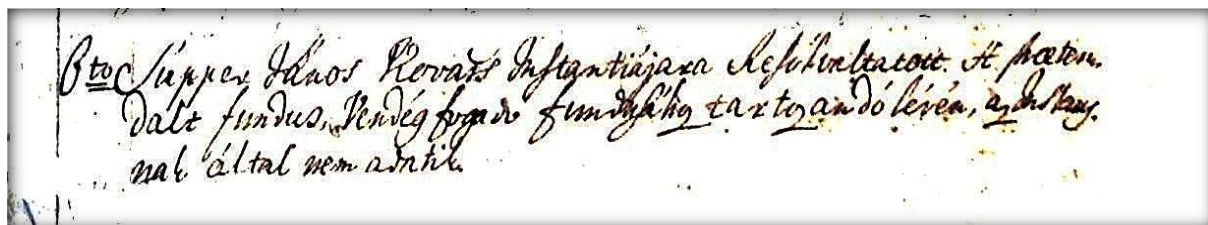 6to Supper János Kovats Instantiájara Resolvaltatott. A' præten-
dalt fundus, Vendég fogado fundusához tartozandó lévén, az Instans-
nak által nem adatik.